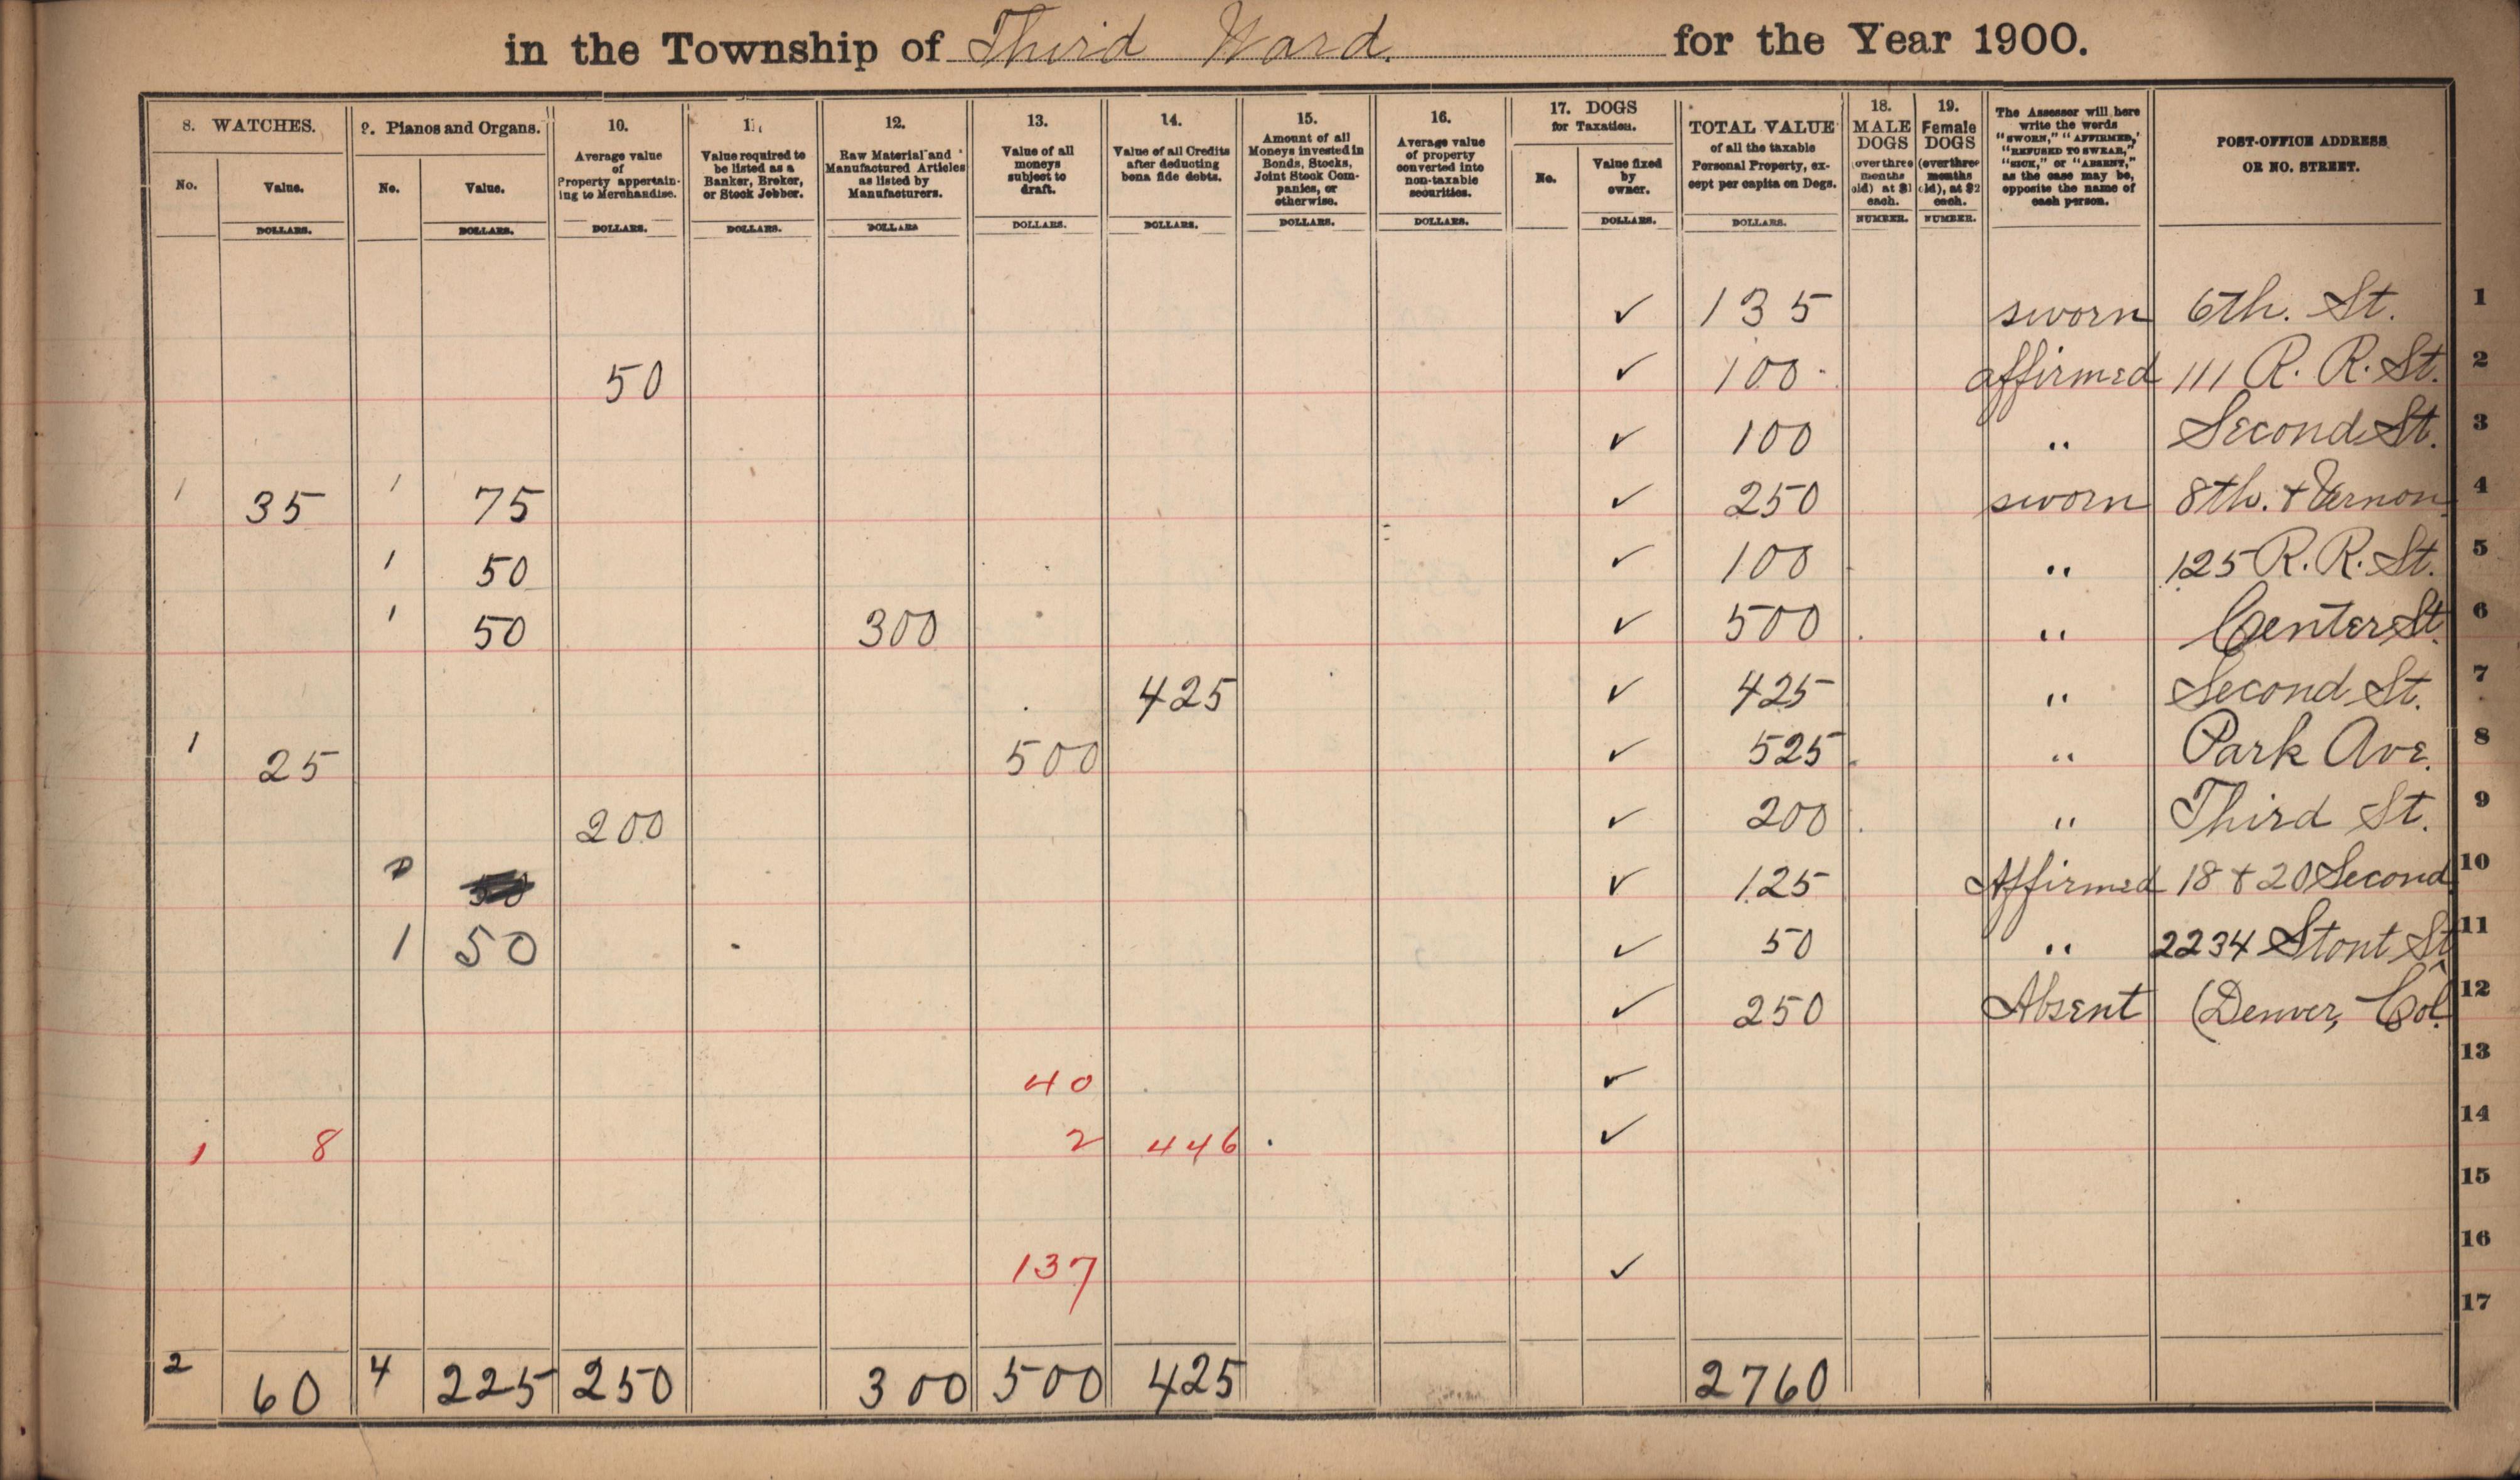 in the Township of Third Ward. for the Year 1900.
8. WATCHES. No. Value. DOLLARS.
9. Pianos and Organs. No. Value. DOLLARS.
10. Average value of Property appertaining to Merchandise. DOLLARS.
11. Value required to be listed as a Banker, Broker, or Stock Jobber. DOLLARS.
12. Raw Material and Manufactured Articles as listed by Manufacturers. DOLLARS
13. Value of all moneys subject to draft. DOLLARS.
14. Value of all Credits after deducting bona fide debts. DOLLARS.
15. Amount of all Moneys invested in Bonds, Stocks, Joint Stock Companies, or otherwise. DOLLARS.
16. Average value of property converted into non-taxable securities. DOLLARS.
17. DOGS for Taxation. No. Value fixed by owner. DOLLARS.
TOTAL VALUE of all the taxable Personal Property, except per capita on Dogs. DOLLARS.
18. MALE DOGS over three months old) at $1 each. NUMBER.
19. Female DOGS (over three months old), at $2 each. NUMBER.
The Assessor will here write the words "SWORN," "AFFIRMED," "REFUSED TO SWEAR," "SICK," or "ABSENT," as the case may be, opposite the name of each person.
POST-OFFICE ADDRESS OR NO. STREET.
✓ 135 sworn 6th. St. 1
50 ✓ 100 affirmed 111 R. R. St. 2
✓ 100 " Second St. 3
1 35 1 75 ✓ 250 sworn 8th. + Vernon 4
1 50 ✓ 100 " 125 R. R. St. 5
1 50 300 ✓ 500 " Center St. 6
425 ✓ 425 " Second St. 7
1 25 500 ✓ 525 " Park Ave. 8
200 ✓ 200 " Third St. 9
50 ✓ 125 Affirmed 18 + 20 Second 10
1 50 ✓ 50 " 2234 Stout St 11
✓ 250 Absent (Denver, Col. 12
40 ✓ 13
1 8 2 446 ✓ 14
15
137 ✓ 16
17
2 60 4 225 250 300 500 425 2760